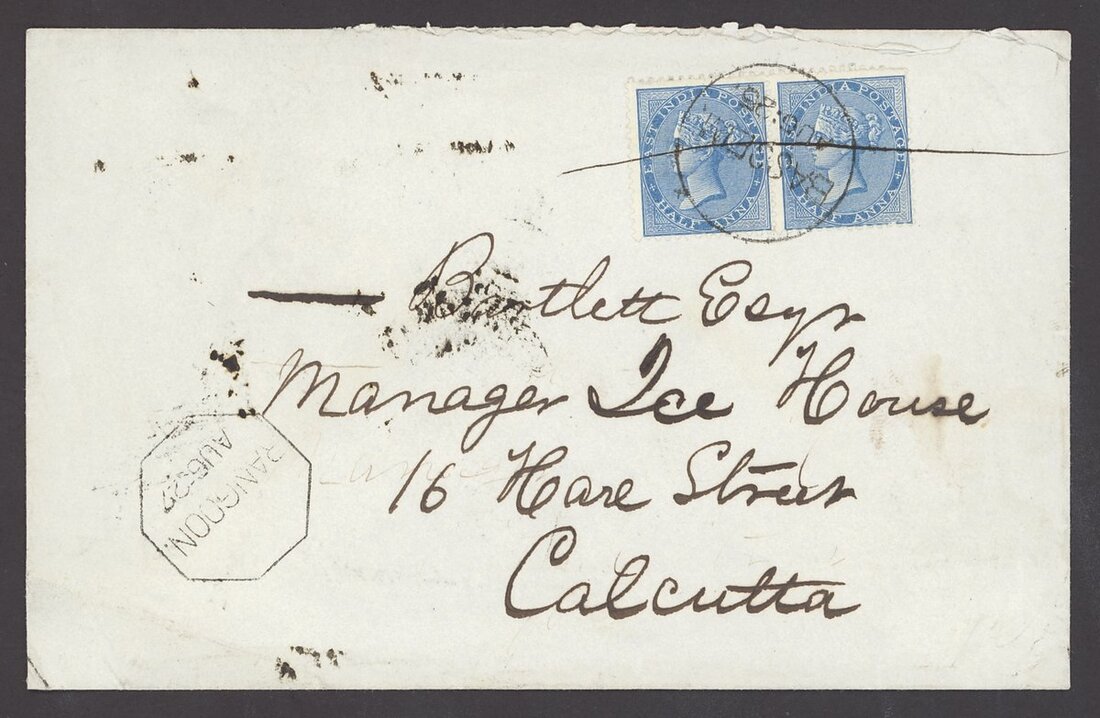 EAST INDIA POSTAGE
HALF ANNA
EAST INDIA POSTAGE
HALF ANNA
BASSEIN
AUG: 26
— Bartlett Esqr
Manager Ice House
16 Hare Street
Calcutta
RANGOON.
AUG: 27